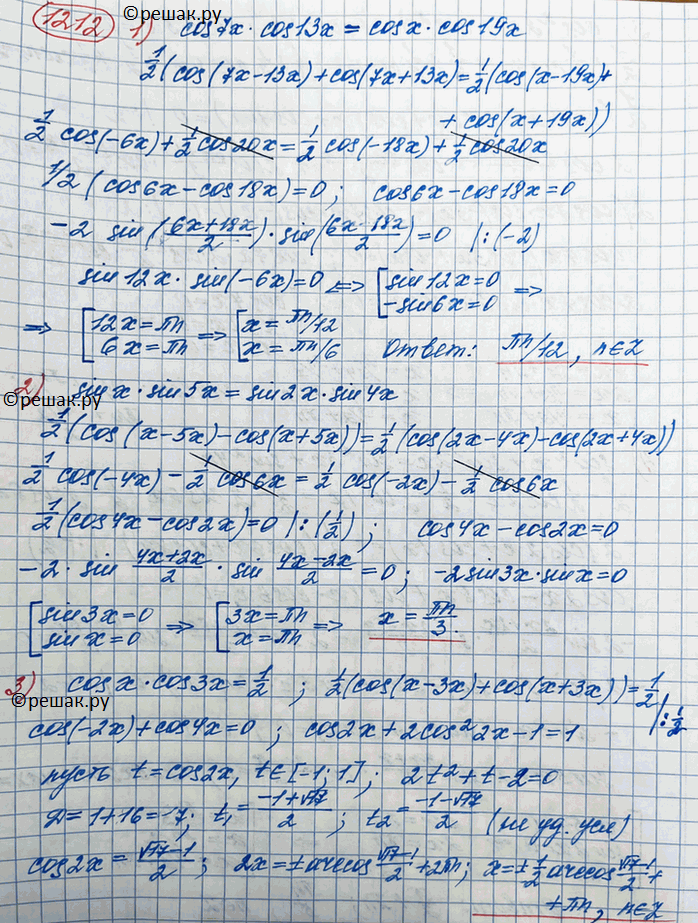 ©решак.ру
1212 1) cos7x · cos13x = cosx · cos19x
1/2(cos(7x-13x)+cos(7x+13x)=1/2(cos(x-19x)+
+ cos(x+19x))
1/2 cos(-6x)+1/2 cos20x=1/2 cos(-18x)+1/2 cos20x
1/2 (cos6x-cos18x)=0; cos6x-cos18x=0
-2 sin(6x+18x/2)·sin(6x-18x/2)=0 |:(-2)
sin12x · sin(-6x)=0 <=> [sin12x=0 =>
-sin6x=0
=> [12x=πn => [x=πn/12
6x=πn x=πn/6 Ответ: πn/12, n∈Z
2) sinx · sin5x = sin2x · sin4x
©решак.ру
1/2(cos(x-5x)-cos(x+5x))=1/2(cos(2x-4x)-cos(2x+4x))
1/2 cos(-4x) - 1/2 cos6x = 1/2 cos(-2x) - 1/2 cos6x
1/2(cos4x-cos2x)=0 |:(1/2); cos4x-cos2x=0
-2 · sin 4x+2x/2 · sin 4x-2x/2 = 0; -2sin3x·sinx=0
[sin3x=0 => [3x=πn => x=πn/3.
sinx=0 x=πn
3) cosx · cos3x=1/2; 1/2(cos(x-3x)+cos(x+3x))=1/2 |:1/2
©решак.ру
cos(-2x)+cos4x=0; cos2x+2cos²2x-1=1
пусть t=cos2x, t∈[-1;1]; 2t²+t-2=0
D=1+16=17; t₁=-1+√17/2; t₂=-1-√17/2 (не уд. усл)
cos2x=√17-1/2; 2x=±arccos √17-1/2+2πn; x=±1/2 arccos √17-1/2+
+πn, n∈Z
©решак.ру